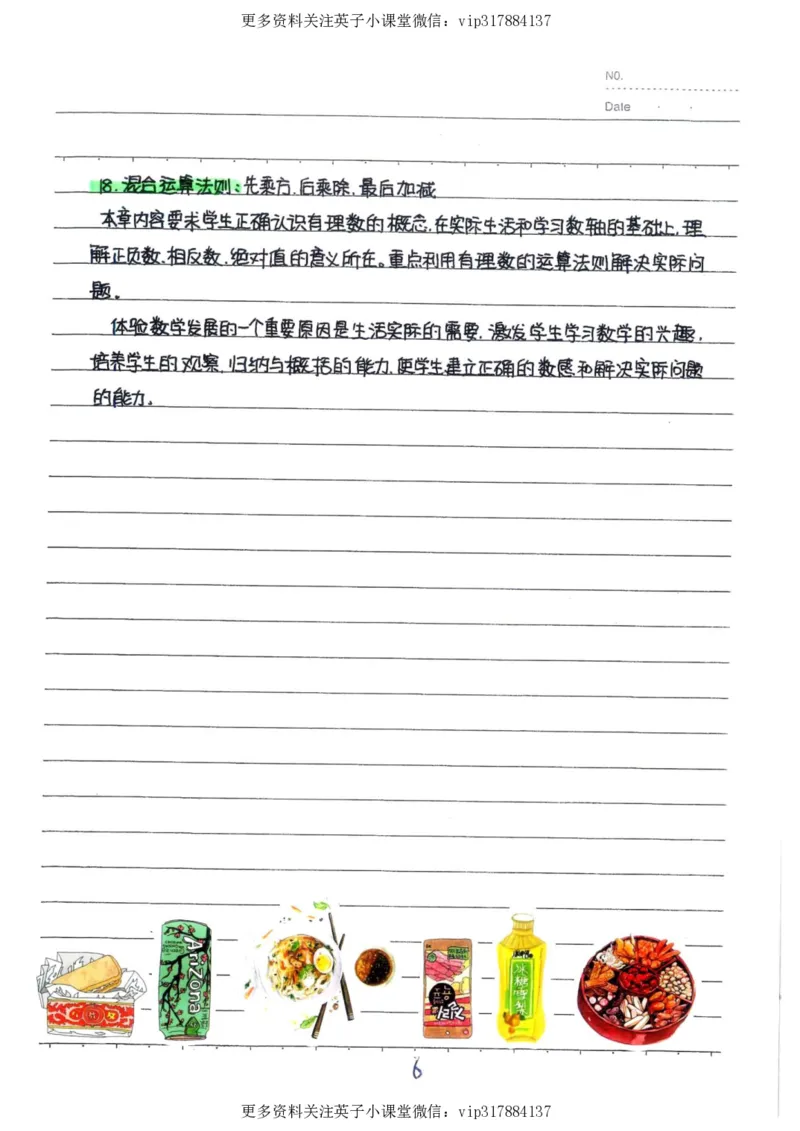 更多资料关注英子小课堂微信：vip317884137
NO.
Date
18.混合运算法则:先乘方,后乘除,最后加减
本章内容要求学生正确认识有理数的概念,在实际生活和学习数轴的基础上,理
解正负数、相反数、绝对值的意义所在。重点利用有理数的运算法则解决实际问
题。
体验数学发展的一个重要原因是生活实际的需要,激发学生学习数学的兴趣,
培养学生的观察、归纳与概括的能力,使学生建立正确的数感和解决实际问题
的能力。
AriZona
冰糖
6
更多资料关注英子小课堂微信：vip317884137